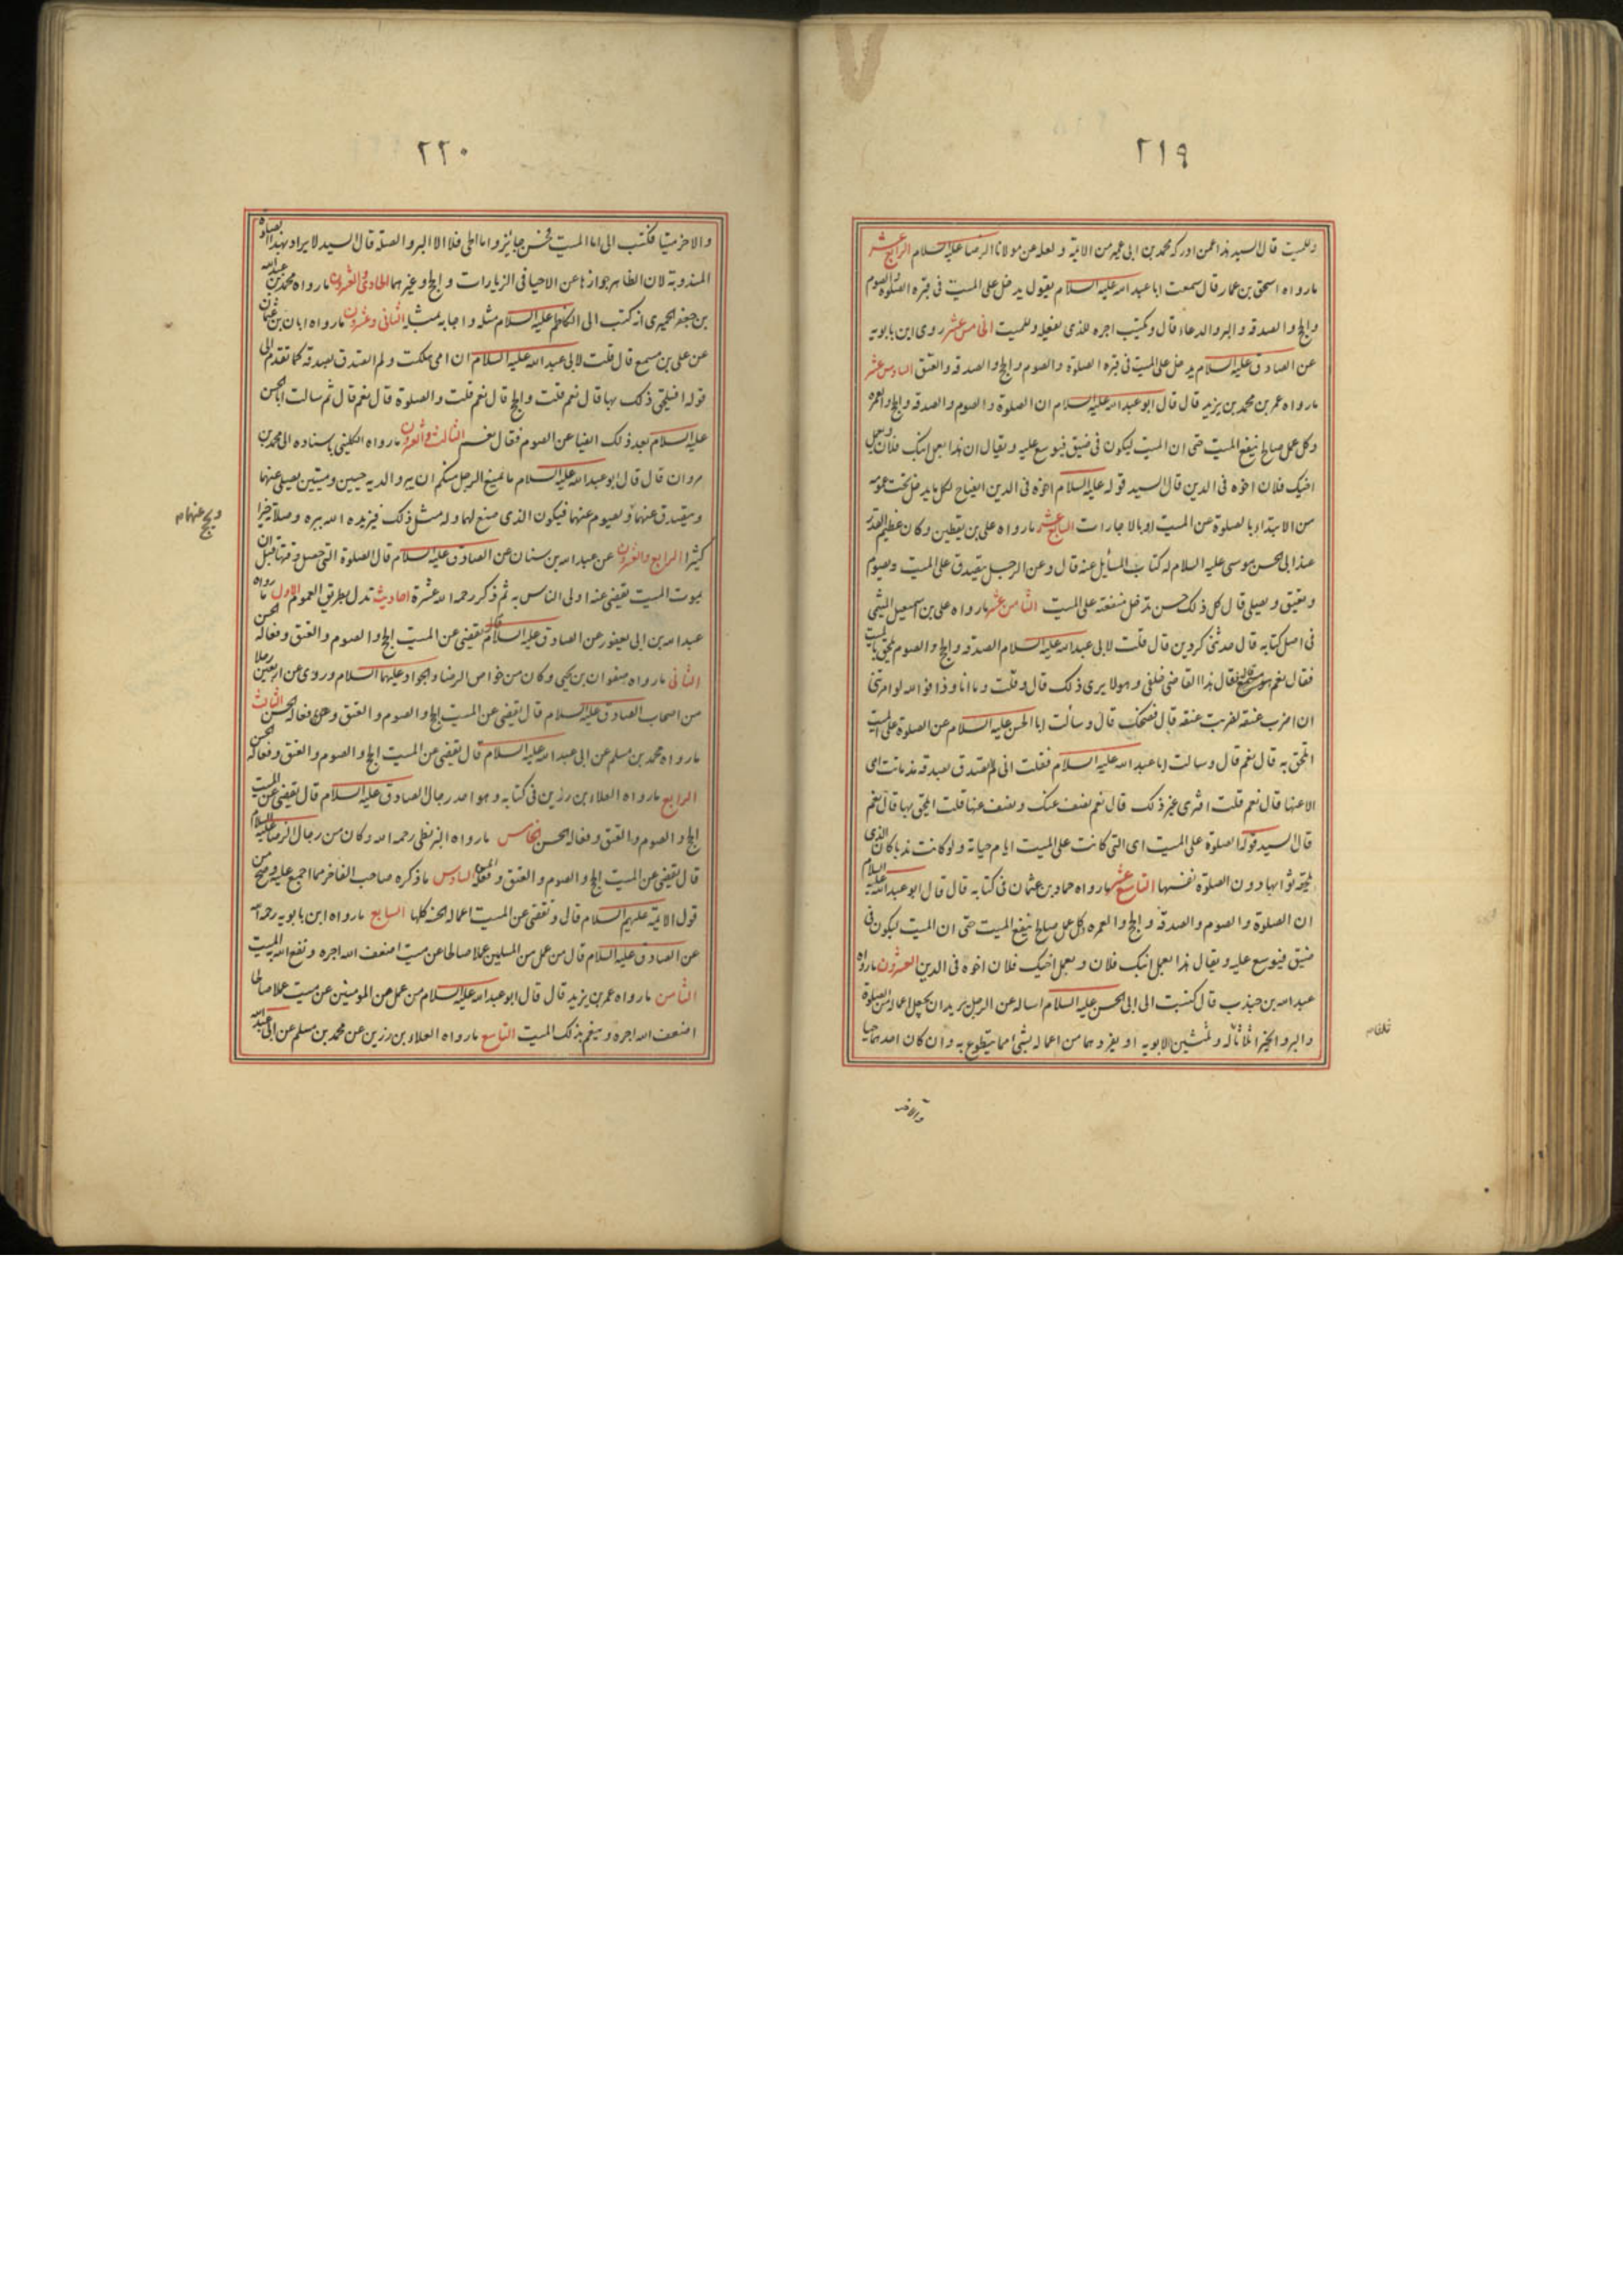 ٢١٩
وللميت قال السيد هذا عمن ادركه محمد بن ابى عمير من الائمة و لعله عن مولانا الرضا عليه السلام الرابع عشر
ما رواه اسحق بن عمار قال سمعت ابا عبد الله عليه السلام يقول يدخل على الميت فى قبره الصلوة والصوم
والحج والصدقه والبر والدعاء قال ويكتب اجره للذى يفعله وللميت الخامس عشر روى ابن بابويه
عن الصادق عليه السلام يدخل على الميت فى قبره الصلوة والصوم والحج والصدقه والعتق السادس عشر
ما رواه عمر بن محمد بن يزيد قال قال ابو عبد الله عليه السلام ان الصلوة والصوم والصدقه والحج والعمره
وكل عمل صالح ينفع الميت حتى ان الميت ليكون فى ضيق فيوسع عليه ويقال ان هذا بعمل ابنك فلان وبعمل
اخيك فلان اخوه فى الدين قال السيد قوله عليه السلام اخوه فى الدين ايضاح لكل ما يدخل تحت عمومه
من الابتداء بالصلوة عن الميت او بالاجارات السابع عشر ما رواه على بن يقطين وكان عظيم القدر
عند ابى الحسن موسى عليه السلام له كتاب المسائل عنه قال وعن الرجل يتصدق على الميت ويصوم
ويعتق ويصلى قال كل ذلك حسن تدخل منفعته على الميت الثامن عشر ما رواه على بن اسمعيل الميثمى
فى اصل كتابه قال حدثنى كردين قال قلت لابى عبد الله عليه السلام الصدقه والحج والصوم يلحق بالميت
فقال نعم فقال هذا القاضى خلفى وهو لا يرى ذلك قال وقلت وما انا وذا فوالله لو امرتنى
ان اضرب عنقه لضربت عنقه قال فضحك قال وسألت ابا الحسن عليه السلام عن الصلوة على الميت
اتلحق به قال نعم قال وسالت ابا عبد الله عليه السلام فقلت انى لم اتصدق بصدقه مذ ماتت امى
الا عنها قال نعم قلت افترى غير ذلك قال نعم نصف عنك ونصف عنها قلت ايلحق بها قال نعم
قال السيد قوله الصلوة على الميت اى التى كانت على الميت ايام حياته ولو كانت ندبا كان الذى
يلحقه ثوابها دون الصلوة نفسها التاسع عشر ما رواه حماد بن عثمان فى كتابه قال قال ابو عبد الله عليه السلام
ان الصلوة والصوم والصدقه والحج والعمره وكل عمل صالح ينفع الميت حتى ان الميت ليكون فى
ضيق فيوسع عليه ويقال هذا بعمل ابنك فلان وبعمل اخيك فلان اخوه فى الدين العشرون ما رواه
عبد الله بن جندب قال كتبت الى ابى الحسن عليه السلام اساله عن الرجل يريد ان يجعل اعماله من الصلوة
والبر والخير اثلاثا ثلثا له وثلثين لابويه او يفردهما من اعماله بشئ مما يتطوع به وان كان احدهما حيا
والاخر
٢٢٠
والاخر ميتا فكتب الى اما الميت فحسن جايز واما الحى فلا الا البر والصلة قال السيد لا يراد بهذا الصلوة
المندوبة لان الظاهر جوازها عن الاحيا فى الزيارات والحج وغيرهما الحادى والعشرون ما رواه محمد بن عبد الله
بن جعفر الحميرى انه كتب الى الكاظم عليه السلام مثله واجابه بمثله الثانى وعشرون ما رواه ابان بن عثمان
عن على بن مسمع قال قلت لابى عبد الله عليه السلام ان امى هلكت ولم اتصدق بصدقه كما تقدم الى
قوله افيلحق ذلك بها قال نعم قلت والحج قال نعم قلت والصلوة قال نعم قال ثم سالت ابا الحسن
عليه السلام بعد ذلك ايضا عن الصوم فقال نعم الثالث والعشرون ما رواه الكلينى باسناده الى محمد بن
مروان قال قال ابو عبد الله عليه السلام ما يمنع الرجل منكم ان يبر والديه حيين وميتين يصلى عنهما
ويتصدق عنهما ويصوم عنهما فيكون الذى صنع لهما وله مثل ذلك فيزيده الله ببره وصلاته خيرا
ويحج عنهما
كثيرا الرابع والعشرون عن عبد الله بن سنان عن الصادق عليه السلام قال الصلوة التى حصل وقتها قبل ان
يموت الميت يقضى عنه اولى الناس به ثم ذكر رحمه الله عشرة احاديث تدل بطريق العموم الاول ما رواه
عبد الله بن ابى يعفور عن الصادق عليه السلام قال يقضى عن الميت الحج والصوم والعتق وفعاله الحسن
الثانى ما رواه صفوان بن يحيى وكان من خواص الرضا والجواد عليهما السلام وروى عن اربعين رجلا
من اصحاب الصادق عليه السلام قال يقضى عن الميت الحج والصوم والعتق وفعاله الحسن الثالث
ما رواه محمد بن مسلم عن ابى عبد الله عليه السلام قال يقضى عن الميت الحج والصوم والعتق وفعاله الحسن
الرابع ما رواه العلاء بن رزين فى كتابه وهو احد رجال الصادق عليه السلام قال يقضى عن الميت
الحج والصوم والعتق وفعاله الحسن الخامس ما رواه البزنطى رحمه الله وكان من رجال الرضا عليه السلام
قال يقضى عن الميت الحج والصوم والعتق وفعله الحسن السادس ما ذكره صاحب الفاخر مما اجمع عليه وصح من
قول الائمة عليهم السلام قال ويقضى عن الميت اعماله الحسنة كلها السابع ما رواه ابن بابويه رحمه الله
عن الصادق عليه السلام قال من عمل من المسلمين عملا صالحا عن ميت اضعف الله اجره ونفع الله به الميت
الثامن ما رواه عمر بن يزيد قال قال ابو عبد الله عليه السلام من عمل من المومنين عن ميت عملا صالحا
اضعف الله اجره وينعم بذلك الميت التاسع ما رواه العلاء بن رزين عن محمد بن مسلم عن ابى عبد الله